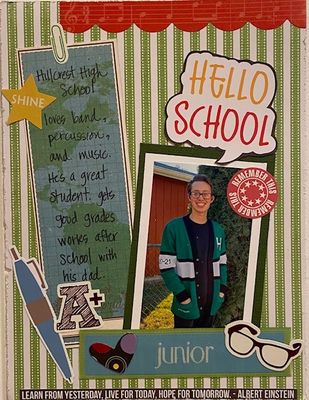 Hillcrest High
School
loves band,
percussion,
and music.
He's a great
student, gets
good grades
works after
school with
his dad.
SHINE
HELLO
SCHOOL
REMEMBER THIS
REMEMBER THIS
H
0-21
A+
junior
LEARN FROM YESTERDAY, LIVE FOR TODAY, HOPE FOR TOMORROW. - ALBERT EINSTEIN